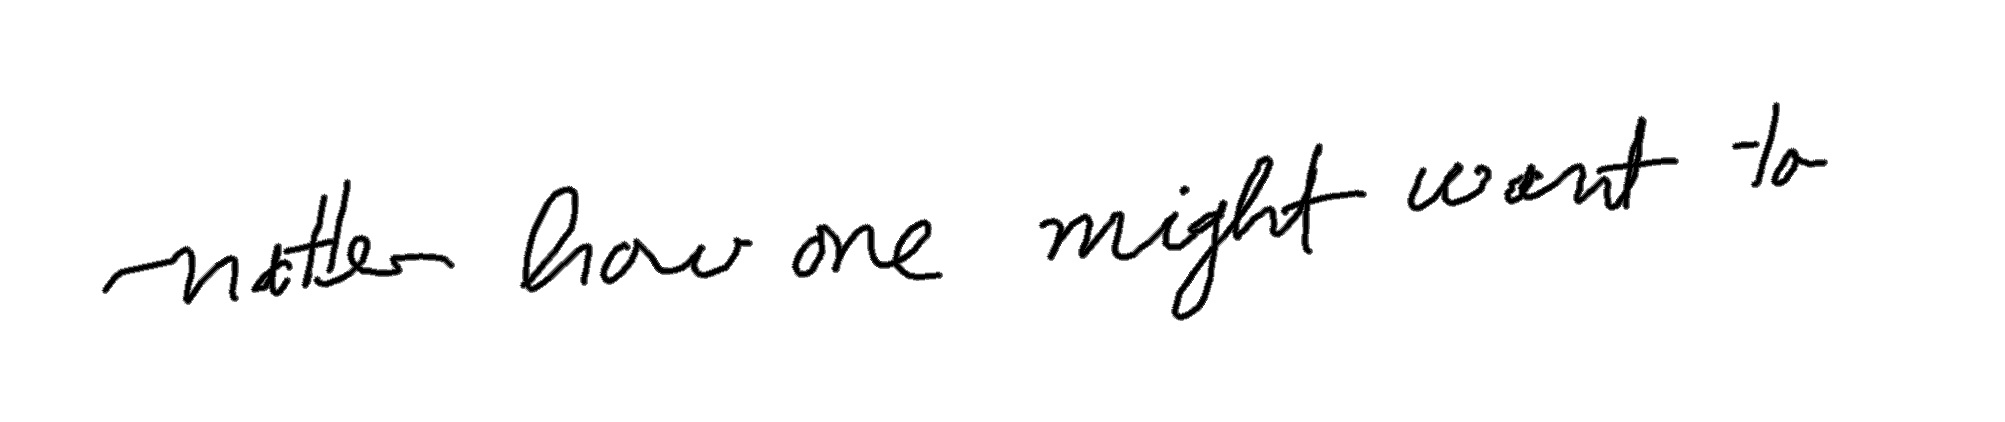 matter how one might want to